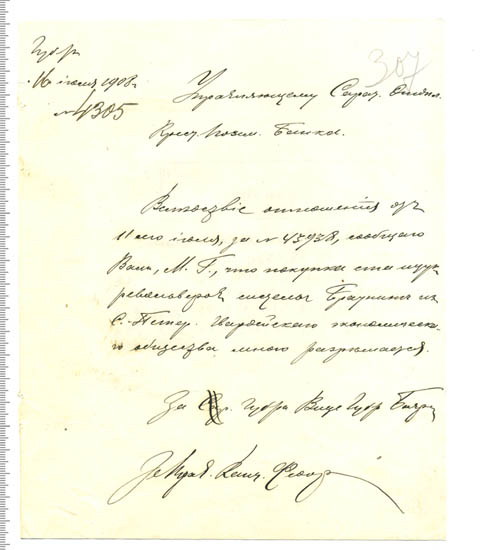 Губр
16 июля 1908 г.
№ 4305
307
Управляющему Сарат. Отдѣл.
Крест. Позем. Банка.
Вслѣдствіе отношенія отъ
11 сего іюля, за № 45938, сообщаю
Вамъ, М. Г., что покупка ста штук
револьверовъ системы Браунингъ из
С.-Петер. Гвардейскаго экономическа-
го общества мною разрѣшается.
За Губра Вице Губр
За Прав. Канц.